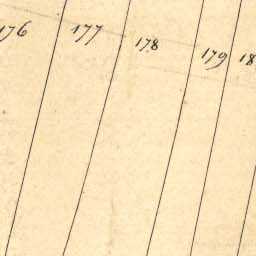 176 177 178 179 18